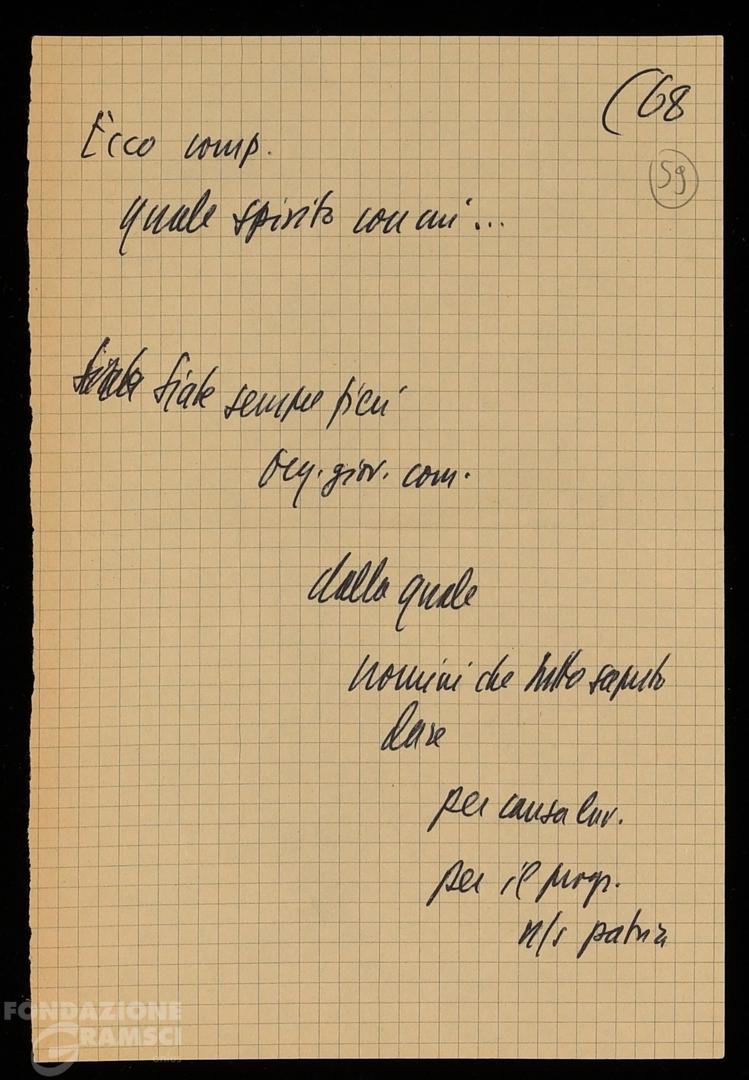 (68
59
Ecco comp.
quale spirito con cui...
siate sempre più
org. giov. com.
dalla quale
uomini che tutto saputo
dare
per causa lav.
per il progr.
n/s patria
FONDAZIONE
GRAMSCI